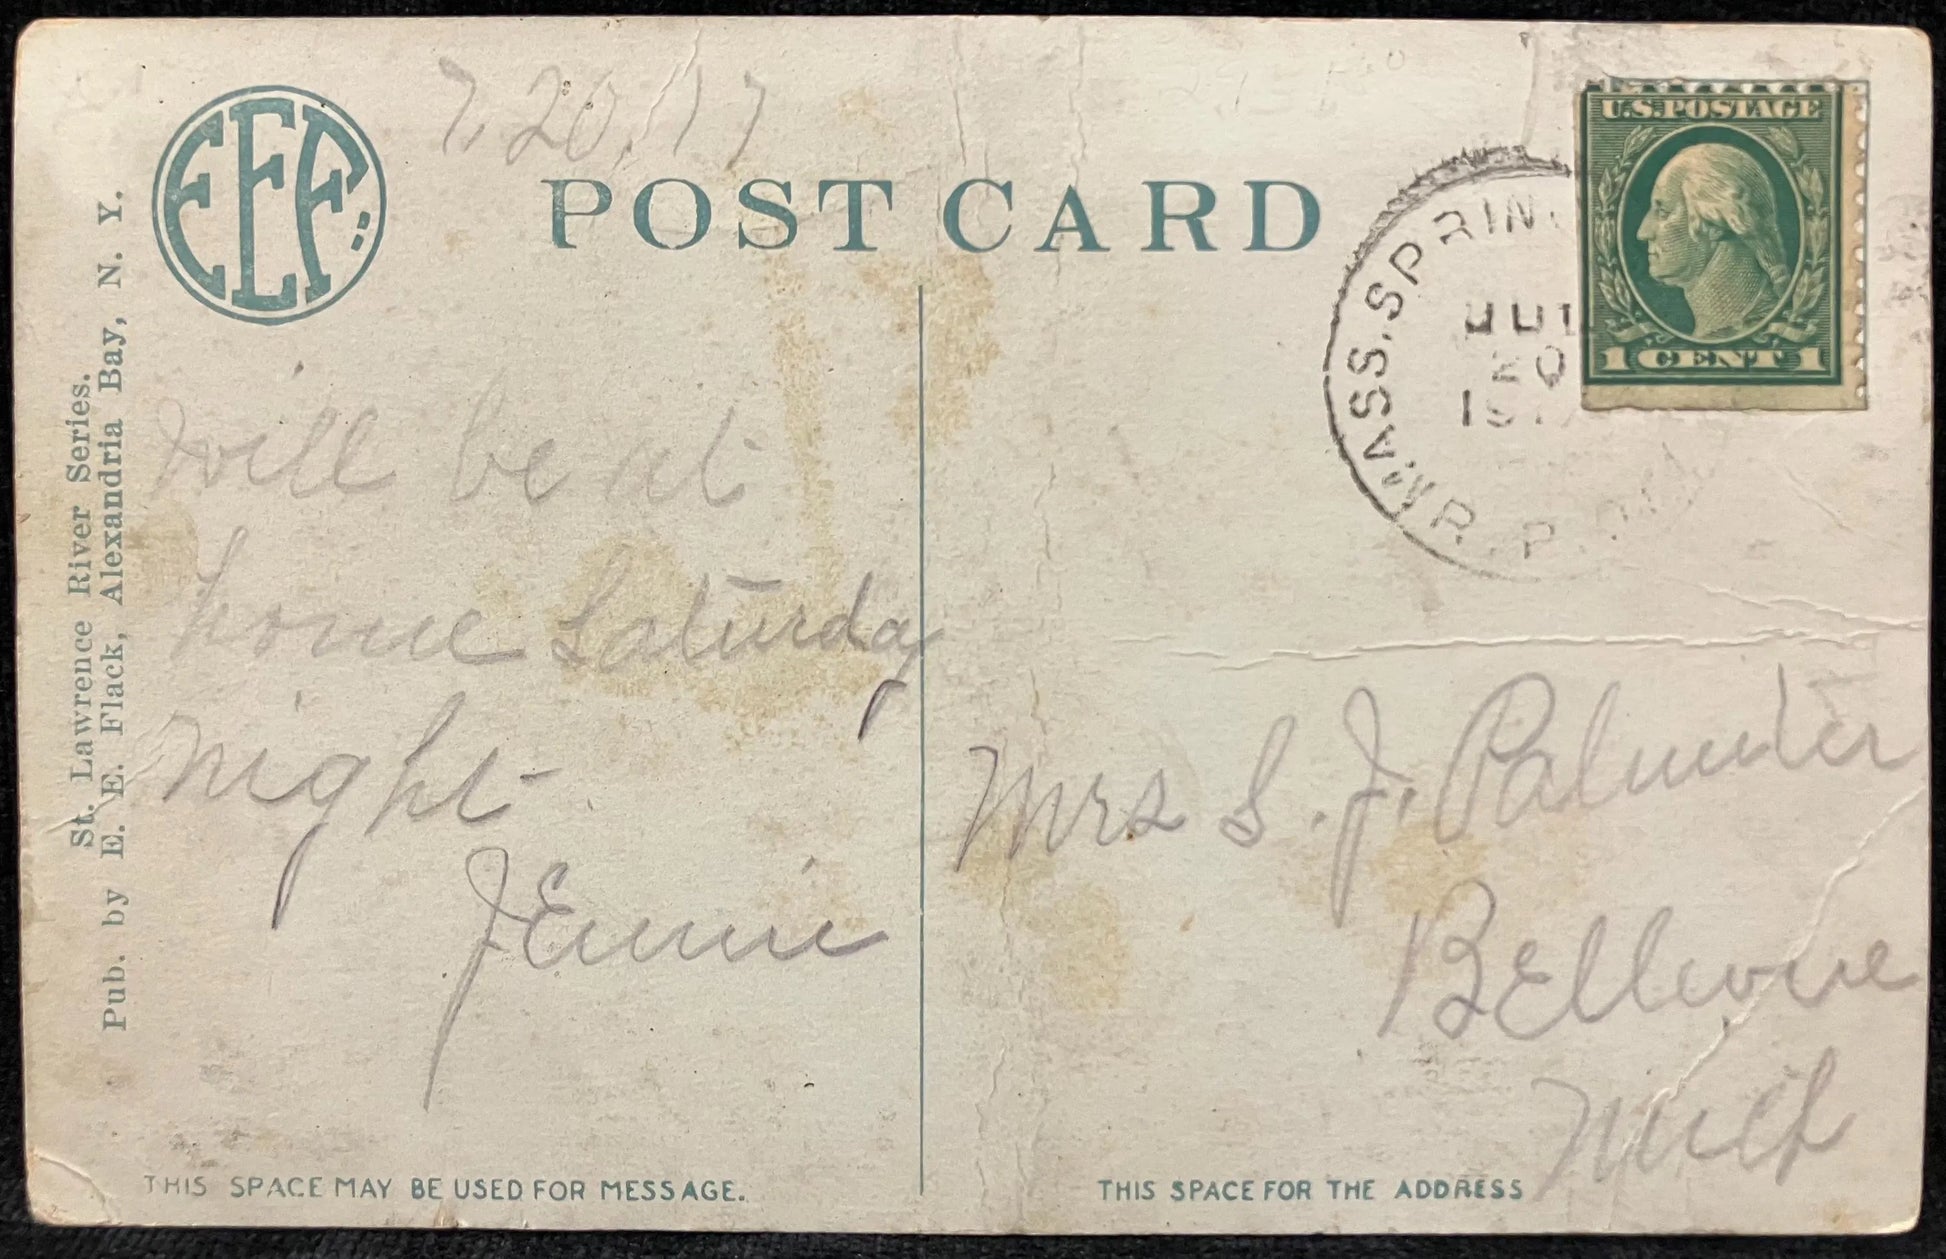 7.20.17
EEF
POST CARD
U.S. POSTAGE
1 CENT 1
MASS. SPRING
JUL
20
R.P.O.
St. Lawrence River Series.
Pub. by E. E. Flack, Alexandria Bay, N. Y.
Will be at
home Saturday
night
Jennie
Mrs S. J. Palmiter
Bellevue
Mich
THIS SPACE MAY BE USED FOR MESSAGE.
THIS SPACE FOR THE ADDRESS